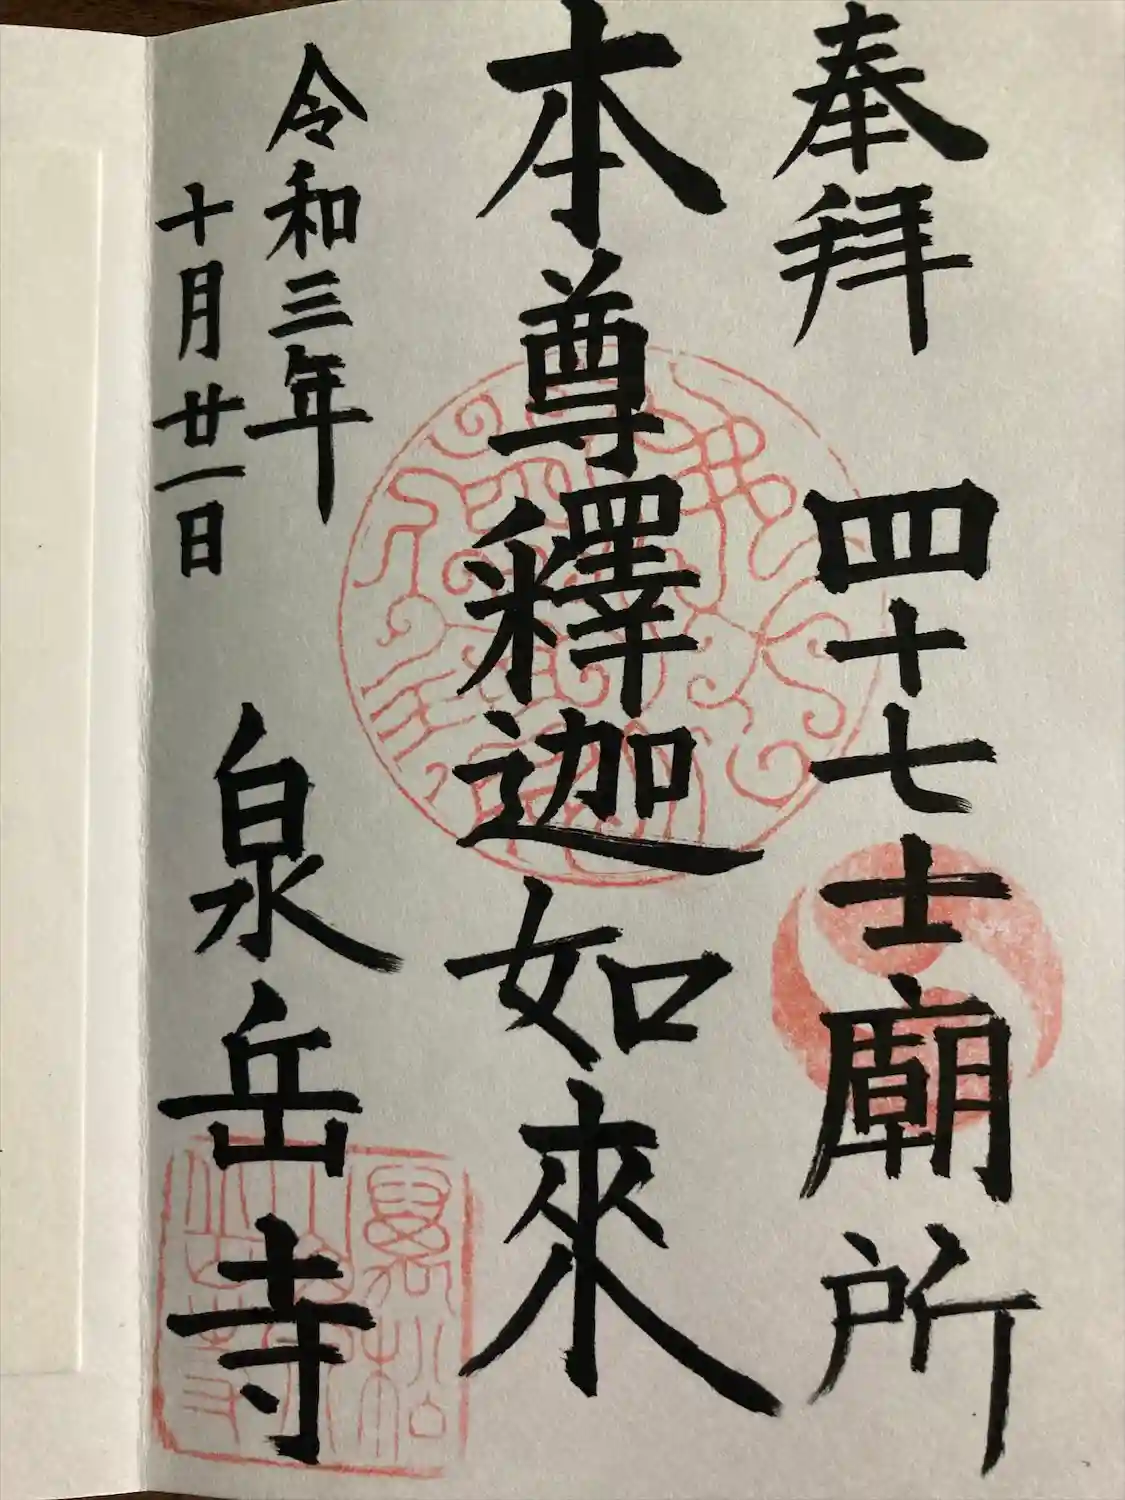 奉拜
四十七士廟所
本尊釋迦如來
令和三年
十月廿一日
泉岳寺